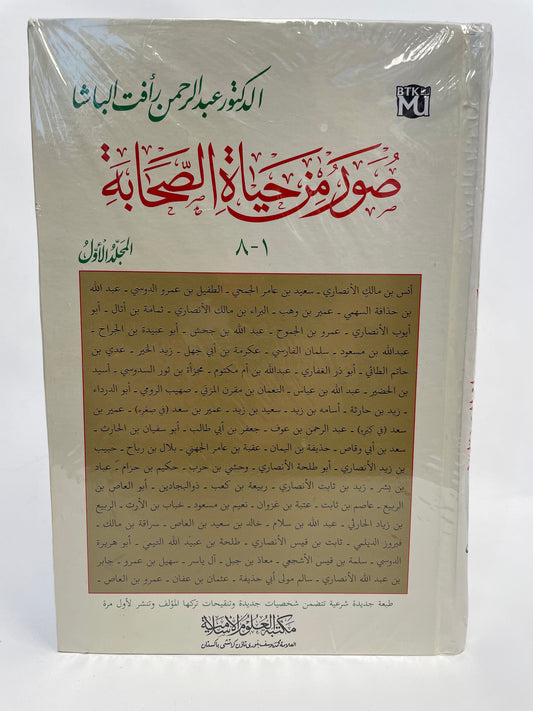 الدكتور عبد الرحمن رأفت الباشا
BTK
MU
صُوَرٌ مِّنْ حَيَاةِ الصَّحَابَةِ
١-٨
المجلّد الأوّل
أنس بن مالك الأنصاري ـ سعيد بن عامر الجمحي ـ الطفيل بن عمرو الدوسي ـ عبد الله
بن حذافة السهمي ـ عمير بن وهب ـ البراء بن مالك الأنصاري ـ ثمامة بن أثال ـ أبو
أيوب الأنصاري ـ عمرو بن الجموح ـ عبد الله بن جحش ـ أبو عبيدة بن الجراح ـ
عبدالله بن مسعود ـ سلمان الفارسي ـ عكرمة بن أبي جهل ـ زيد الخير ـ عدي بن
حاتم الطائي ـ أبو ذر الغفاري ـ عبدالله بن أم مكتوم ـ مجزأة بن ثور السدوسي ـ أسيد
بن الحضير ـ عبد الله بن عباس ـ النعمان بن مقرن المزني ـ صهيب الرومي ـ أبو الدرداء
ـ زيد بن حارثة ـ أسامة بن زيد ـ سعيد بن زيد ـ عمير بن سعد (في صغره) ـ عمير بن
سعد (في كبره) ـ عبد الرحمن بن عوف ـ جعفر بن أبي طالب ـ أبو سفيان بن الحارث ـ
سعد بن أبي وقاص ـ حذيفة بن اليمان ـ عقبة بن عامر الجهني ـ بلال بن رباح ـ حبيب
بن زيد الأنصاري ـ أبو طلحة الأنصاري ـ وحشي بن حرب ـ حكيم بن حزام ـ عباد
بن بشر ـ زيد بن ثابت الأنصاري ـ ربيعة بن كعب ـ ذوالبجادين ـ أبو العاص بن
الربيع ـ عاصم بن ثابت ـ عتبة بن غزوان ـ نعيم بن مسعود ـ خباب بن الأرت ـ الربيع
بن زياد الحارثي ـ عبد الله بن سلام ـ خالد بن سعيد بن العاص ـ سراقة بن مالك ـ
فيروز الديلمي ـ ثابت بن قيس الأنصاري ـ طلحة بن عبيد الله التيمي ـ أبو هريرة
الدوسي ـ سلمة بن قيس الأشجعي ـ معاذ بن جبل ـ آل ياسر ـ سهيل بن عمرو ـ جابر
بن عبد الله الأنصاري ـ سالم مولى أبي حذيفة ـ عثمان بن عفان ـ عمرو بن العاص ـ
طبعة جديدة شرعية تتضمن شخصيات جديدة وتنقيحات تركها المؤلف وتنشر لأول مرة
مكتبة العلوم الإسلامية
العلامة محمد يوسف بنوري ٹاؤن كراتشي باكستان